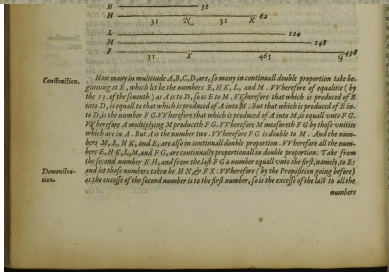 E 31
H 31 N 31 K 62
L 124
M 248
F 31 X 465 G 496
Construction.
How many in multitude A,B,C,D, are, so many in continuall double proportion take be-
ginning at E, which let be the numbers E, H K, L, and M. VVherefore of equalitie (by
the 13. of the seuenth) as A is to D, so is E to M. VVherefore that which is produced of E
into D, is equall to that which is produced of A into M. But that which is produced of E in-
to D, is the number F G. VVherefore that which is produced of A into M, is equall vnto F G.
VVherefore A multiplying M produceth F G. VVherefore M measureth F G by those vnities
which are in A. But A is the number two. VVherefore F G is double to M. And the num-
bers M, L, H K, and E, are also in continuall double proportion. VVherefore all the num-
bers E, H K, L, M, and F G, are continually proportionall in double proportion. Take from
the second number K H, and from the last F G a number equall vnto the first, namely, to E:
Demonstra-
tion.
and let those numbers taken be H N, & F X. VVherefore (by the Proposition going before)
as the excesse of the second number is to the first number, so is the excesse of the last to all the
numbers